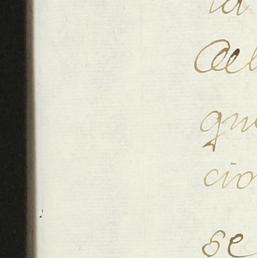 la
del
qu
cio
se